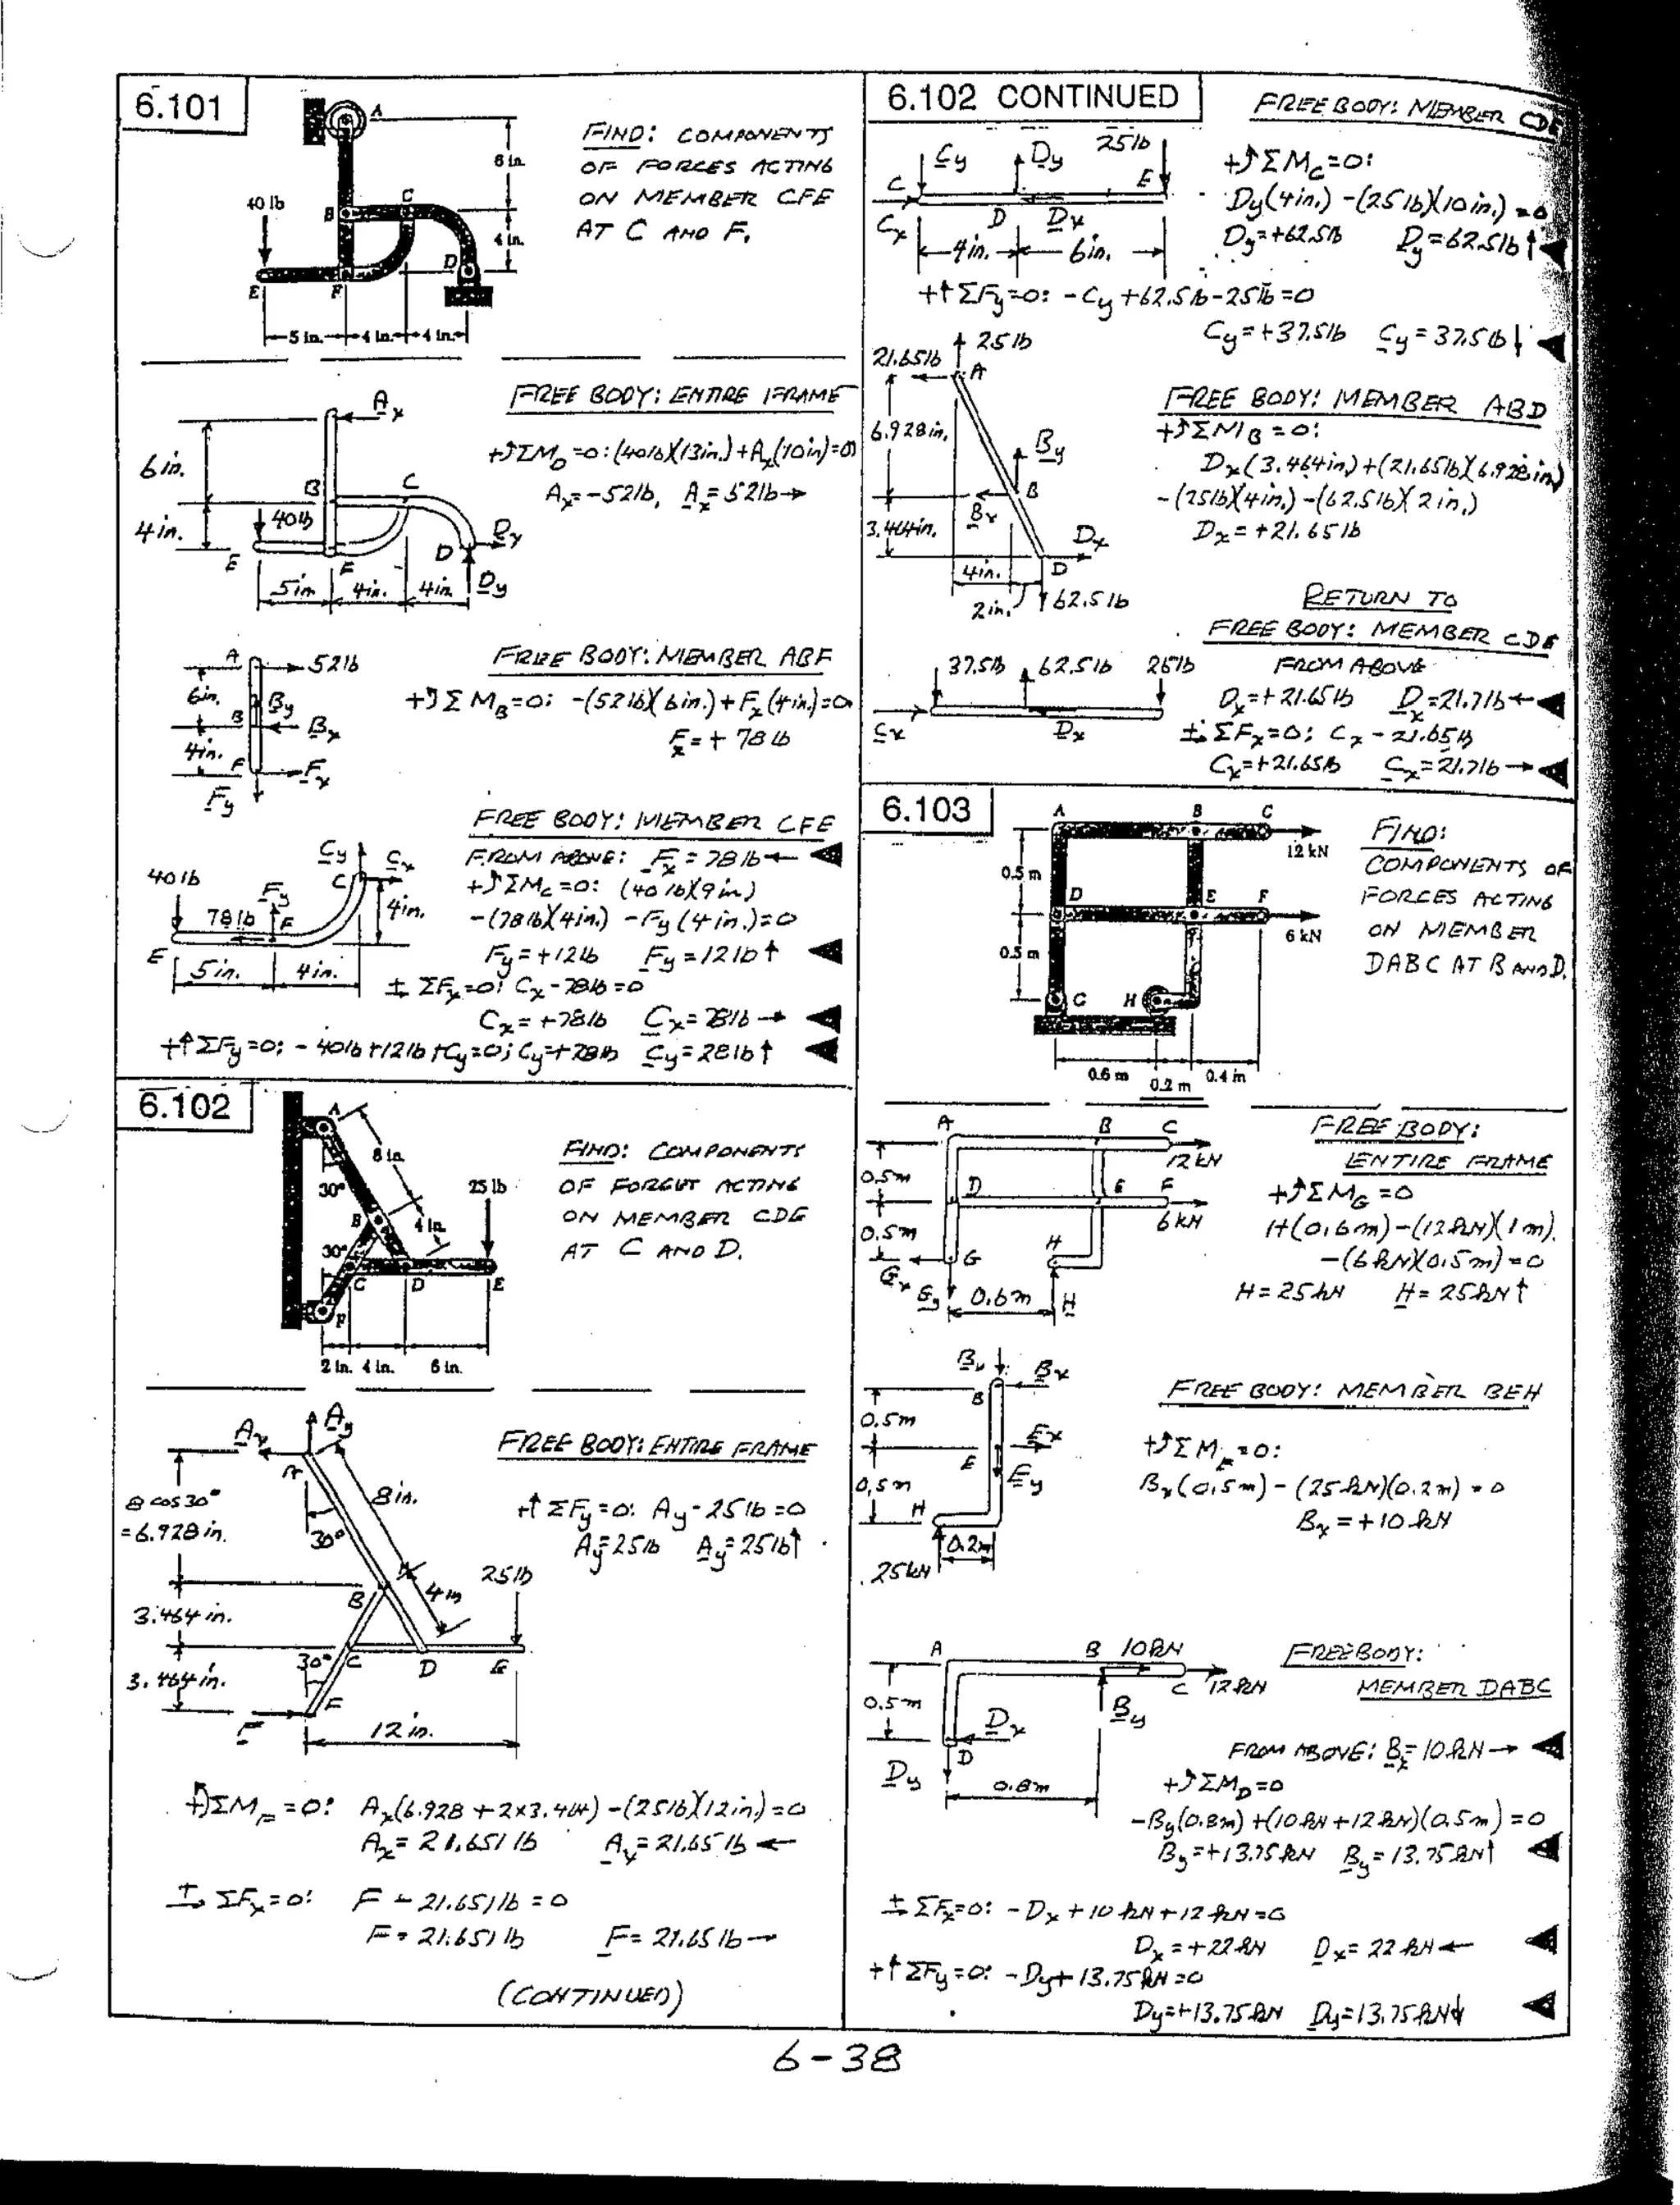 6.101
A
6 in.
40 lb
B
C
4 in.
D
E
F
5 in. 4 in. 4 in.
FIND: COMPONENTS
OF FORCES ACTING
ON MEMBER CFE
AT C AND F.
FREE BODY: ENTIRE FRAME
Ax
6 in.
B C
4 in.
40 lb
E F D Dx
5 in 4 in. 4 in Dy
+↺ΣMD=0: (40 lb)(13 in.)+Ax(10 in)=0
Ax=-52 lb, Ax=52 lb→
FREE BODY: MEMBER ABF
A 52 lb
6 in. By
B Bx
4 in. F Fx
Fy
+↺ΣMB=0: -(52 lb)(6 in.)+Fx(4 in.)=0
Fx=+78 lb
FREE BODY: MEMBER CFE
Cy Cx
C
40 lb
Fy
78 lb F 4 in.
E 5 in. 4 in.
FROM ABOVE: Fx=78 lb← ◀
+↺ΣMC=0: (40 lb)(9 in.)
-(78 lb)(4 in.) -Fy(4 in.)=0
Fy=+12 lb Fy=12 lb↑ ◀
+→ΣFx=0: Cx-78 lb=0
Cx=+78 lb Cx=78 lb→ ◀
+↑ΣFy=0: -40 lb+12 lb+Cy=0; Cy=+28 lb Cy=28 lb↑ ◀
6.102
A
8 in.
30° 25 lb
B 4 in.
30°
C D E
F
2 in. 4 in. 6 in.
FIND: COMPONENTS
OF FORCES ACTING
ON MEMBER CDE
AT C AND D.
FREE BODY: ENTIRE FRAME
Ax Ay
A
8 cos30° 8 in.
=6.928 in. 30°
B 4 in 25 lb
3.464 in.
30° C D E
3.464 in. F
F 12 in.
+↑ΣFy=0: Ay-25 lb=0
Ay=25 lb Ay=25 lb↑
+↺ΣMF=0: Ax(6.928+2×3.464)-(25 lb)(12 in)=0
Ax=21.651 lb Ax=21.65 lb←
+→ΣFx=0: F-21.651 lb=0
F=21.651 lb F=21.65 lb→
(CONTINUED)
6.102 CONTINUED
FREE BODY: MEMBER CDE
Cy Dy 25 lb
C E
Cx D Dx
4 in. 6 in.
+↺ΣMC=0:
Dy(4 in.)-(25 lb)(10 in.)=0
Dy=+62.5 lb Dy=62.5 lb↑ ◀
+↑ΣFy=0: -Cy+62.5 lb-25 lb=0
Cy=+37.5 lb Cy=37.5 lb↓ ◀
25 lb
21.65 lb A
6.928 in.
By
B
Bx
3.464 in. Dx
4 in. D
2 in. 62.5 lb
FREE BODY: MEMBER ABD
+↺ΣMB=0:
Dx(3.464 in)+(21.65 lb)(6.928 in)
-(25 lb)(4 in.)-(62.5 lb)(2 in.)
Dx=+21.65 lb
RETURN TO
FREE BODY: MEMBER CDE
37.5 lb 62.5 lb 25 lb
Cx Dx
FROM ABOVE
Dx=+21.65 lb Dx=21.7 lb← ◀
+→ΣFx=0: Cx-21.65 lb
Cx=+21.65 lb Cx=21.7 lb→ ◀
6.103
A B C
12 kN
0.5 m
D E F
6 kN
0.5 m
G H
0.6 m 0.2 m 0.4 m
FIND:
COMPONENTS OF
FORCES ACTING
ON MEMBER
DABC AT B AND D.
FREE BODY:
ENTIRE FRAME
A B C
12 kN
0.5 m
D E F
6 kN
0.5 m
H
Gx G
Gy 0.6 m H
+↺ΣMG=0
H(0.6 m)-(12 kN)(1 m)
-(6 kN)(0.5 m)=0
H=25 kN H=25 kN↑
FREE BODY: MEMBER BEH
By Bx
B
0.5 m
Ex
E Ey
0.5 m
H
0.2 m
25 kN
+↺ΣME=0:
Bx(0.5 m)-(25 kN)(0.2 m)=0
Bx=+10 kN
FREE BODY:
MEMBER DABC
A B 10 kN
C 12 kN
0.5 m By
Dx
D
Dy 0.8 m
FROM ABOVE: Bx=10 kN→ ◀
+↺ΣMD=0
-By(0.8 m)+(10 kN+12 kN)(0.5 m)=0
By=+13.75 kN By=13.75 kN↑ ◀
+→ΣFx=0: -Dx+10 kN+12 kN=0
Dx=+22 kN Dx=22 kN← ◀
+↑ΣFy=0: -Dy+13.75 kN=0
Dy=+13.75 kN Dy=13.75 kN↓ ◀
6-38